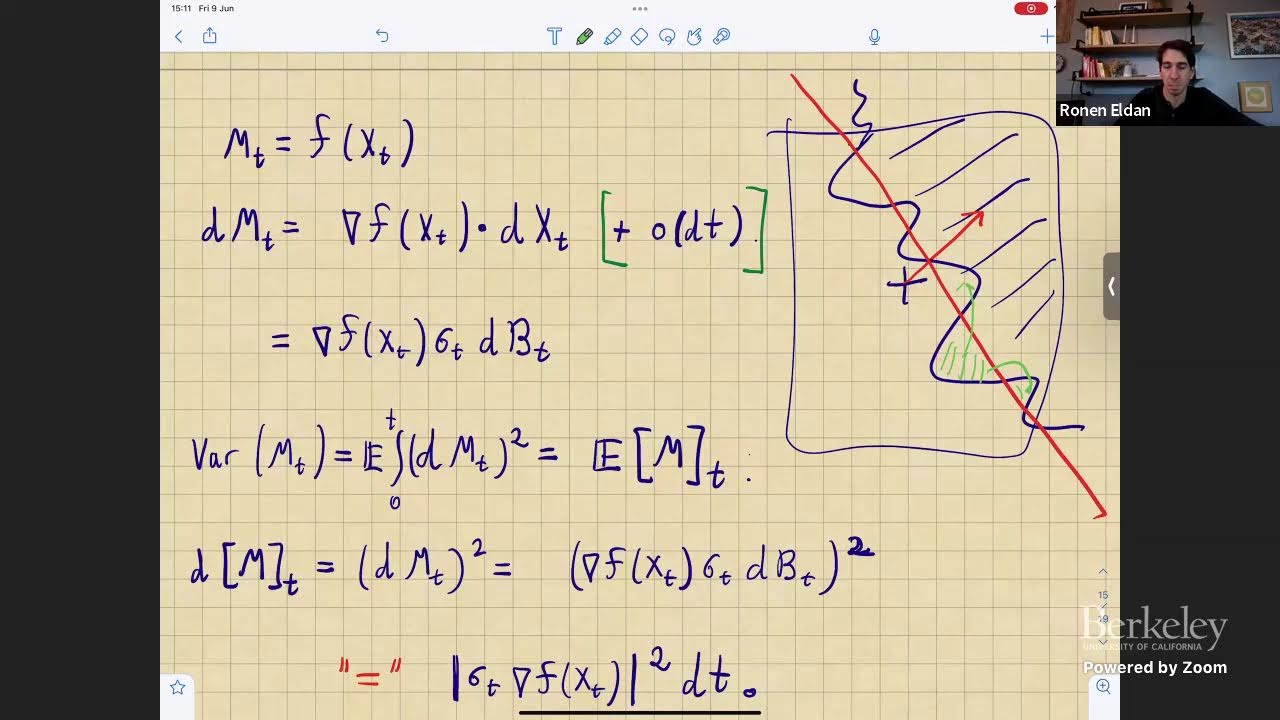 15:11 Fri 9 Jun
Ronen Eldan
M_t = f(X_t)
dM_t = ∇f(X_t)·dX_t [+ o(dt).]
= ∇f(X_t)σ_t dB_t
Var(M_t) = 𝔼∫_0^t(dM_t)^2 = 𝔼[M]_t.
d[M]_t = (dM_t)^2 = (∇f(X_t)σ_t dB_t)^2
"=" |σ_t ∇f(X_t)|^2 dt.
15
19
Berkeley
UNIVERSITY OF CALIFORNIA
Powered by Zoom